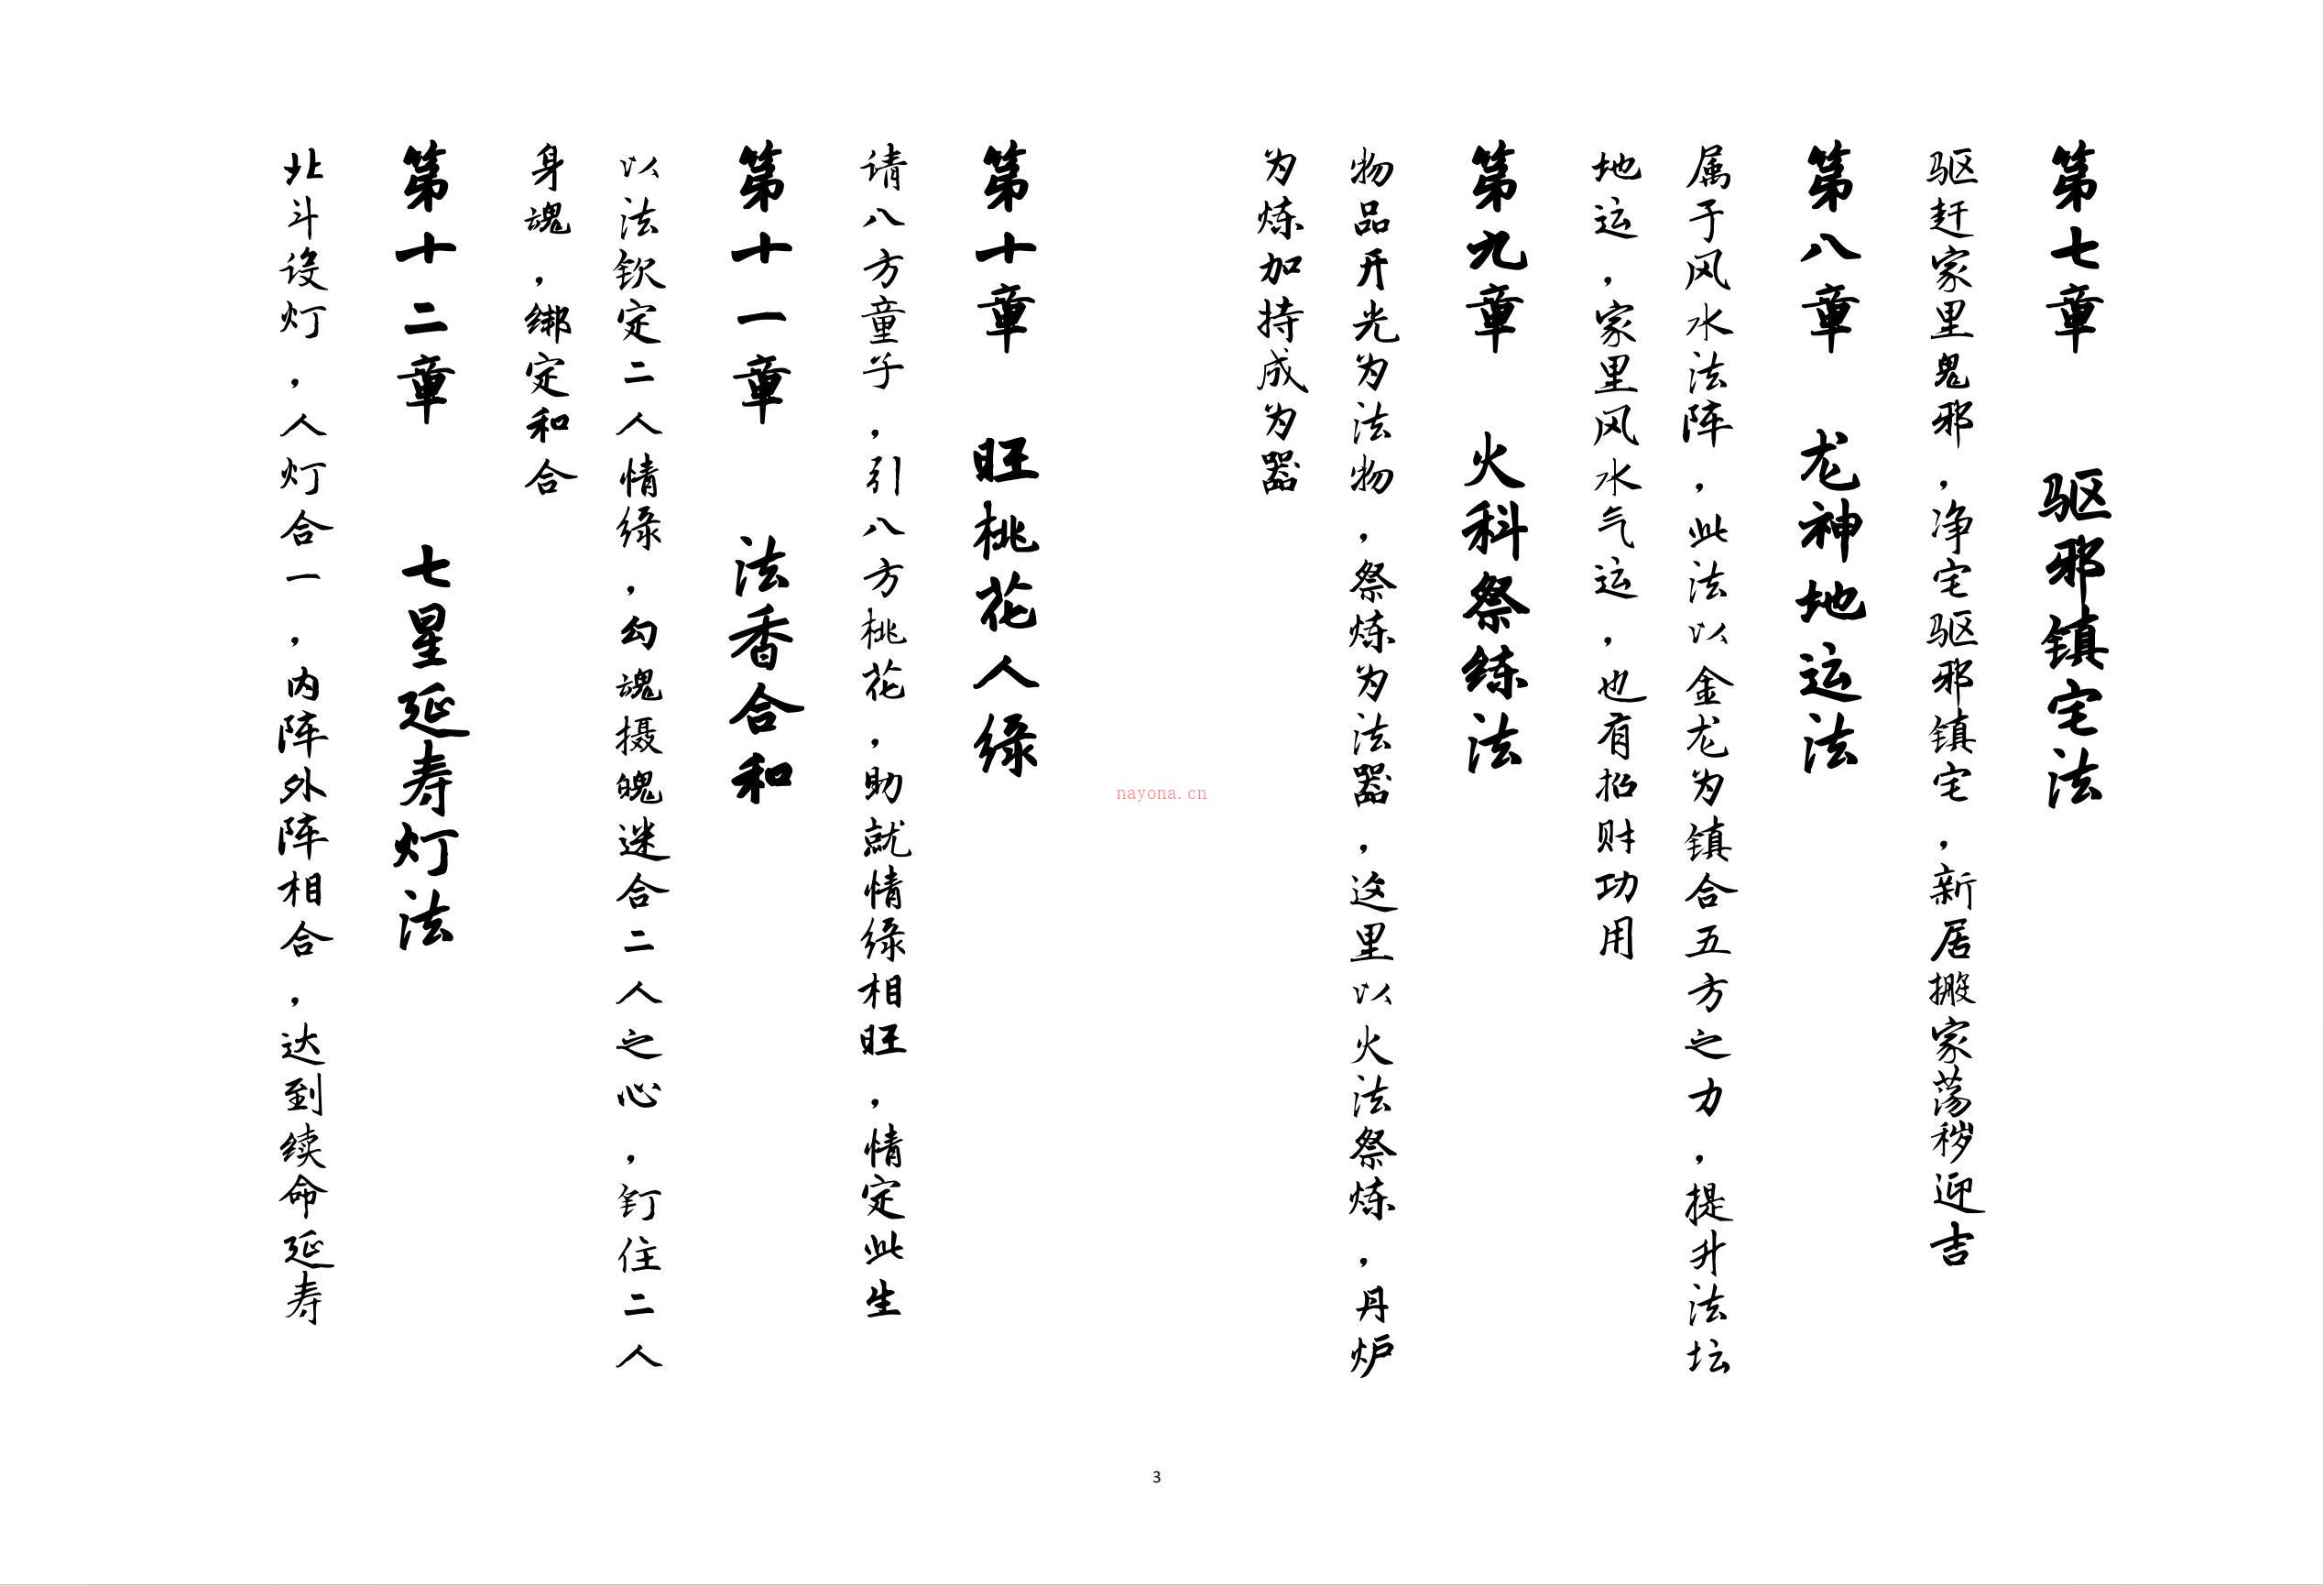 第七章 驱邪镇宅法
驱赶家里鬼邪，净宅驱邪镇宅，新居搬家荡秽迎吉
第八章 龙神地运法
属于风水法阵，此法以金龙为镇合五方之力，提升法坛
地运，家里风水气运，也有招财功用
第九章 火科祭练法
物品开光为法物，祭炼为法器，这里以火法祭炼，丹炉
为炼加持成为器
第十章 旺桃花人缘
请八方童子，引八方桃花，助就情缘相旺，情定此生
第十一章 法香合和
以法钦定二人情缘，勾魂摄魄迷合二人之心，钉住二人
身魂，绑定和合
第十二章 七星延寿灯法
北斗设灯，人灯合一，内阵外阵相合，达到续命延寿
nayona.cn
3